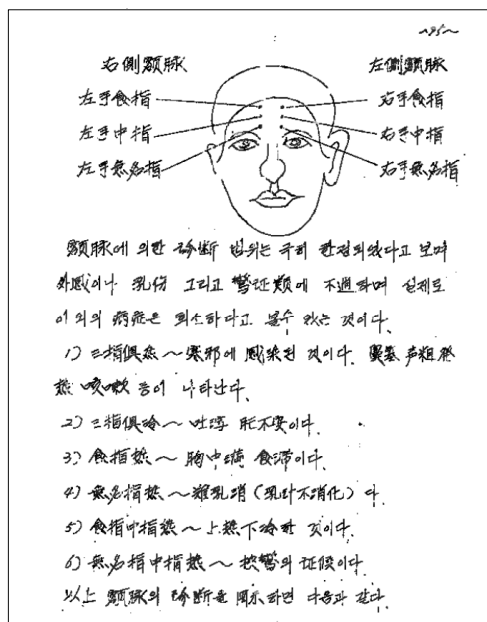 ~95~
右側額脉 左側額脉
左手食指 右手食指
左手中指 右手中指
左手無名指 右手無名指
額脉에 의한 診断 범위는 극히 한정되었다고 보며
外感이나 乳傷 그리고 驚证類에 不過하며 실제로
이 외의 病症은 희소하다고 볼수 있는 것이다.
1) 三指俱热~寒邪에 感染된 것이다. 鼻塞 声粗 發
热 咳嗽 等이 나타난다.
2) 三指俱冷~吐瀉 肚不安이다.
3) 食指热~胸中満 食滞이다.
4) 無名指热~難乳消(乳汁不消化)다.
5) 食指中指热~上热下冷한 것이다.
6) 無名指中指热~挾驚의 证候이다.
以上 額脉의 診断을 図示하면 다음과 같다.